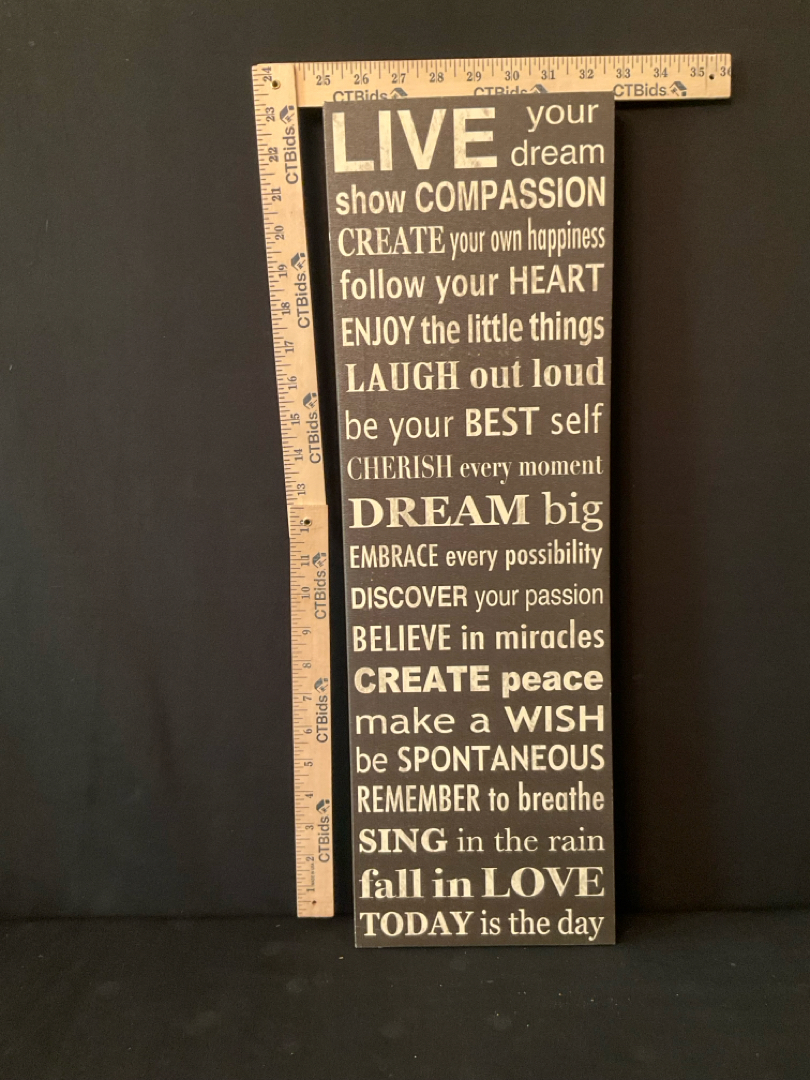 24 25 26 27 28 29 30 31 32 33 34 35 36
CTBids CTBids CTBids
23
CTBids
22
21
20
19
CTBids
18
17
16
15
CTBids
14
13
12
11
CTBids
10
9
8
7
CTBids
6
5
4
3
CTBids
2
1
LIVE your
dream
show COMPASSION
CREATE your own happiness
follow your HEART
ENJOY the little things
LAUGH out loud
be your BEST self
CHERISH every moment
DREAM big
EMBRACE every possibility
DISCOVER your passion
BELIEVE in miracles
CREATE peace
make a WISH
be SPONTANEOUS
REMEMBER to breathe
SING in the rain
fall in LOVE
TODAY is the day